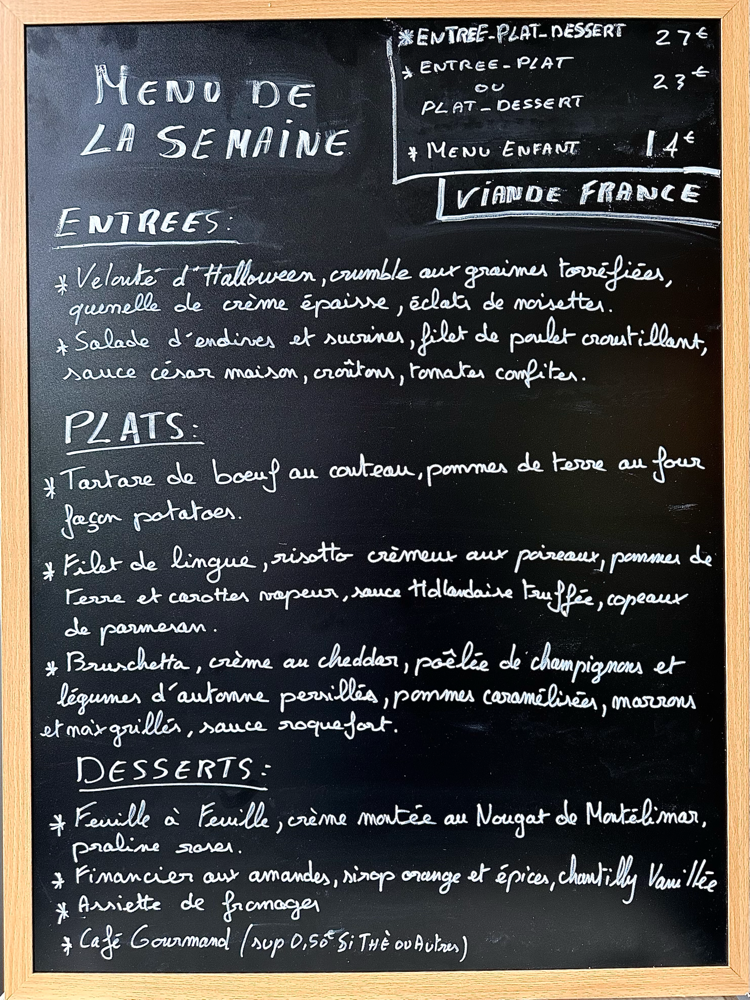 MENU DE
LA SEMAINE
*ENTREE-PLAT-DESSERT 27€
* ENTREE-PLAT
OU
PLAT-DESSERT 23€
* MENU ENFANT 14€
VIANDE FRANCE
ENTREES:
* Velouté d'Halloween, crumble aux graines torréfiées,
quenelle de crème épaisse, éclats de noisettes.
* Salade d'endives et sucrines, filet de poulet croustillant,
sauce césar maison, croûtons, tomates confites.
PLATS:
* Tartare de boeuf au couteau, pommes de terre au four
façon potatoes.
* Filet de lingue, risotto crèmeux aux poireaux, pommes de
terre et carottes vapeur, sauce Hollandaise truffée, copeaux
de parmesan.
* Bruschetta, crème au cheddar, poêlée de champignons et
légumes d'automne persillés, pommes caramélisées, marrons
et noix grillés, sauce roquefort.
DESSERTS:
* Feuille à Feuille, crème montée au Nougat de Montélimar,
praline roses.
* Financier aux amandes, sirop orange et épices, chantilly Vanillée
* Assiette de fromages
* Café Gourmand (sup 0,50€ Si THÈ ou Autres)